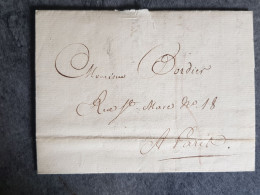 Monsieur Bordier
Rue St. Marc No. 18
A Paris.